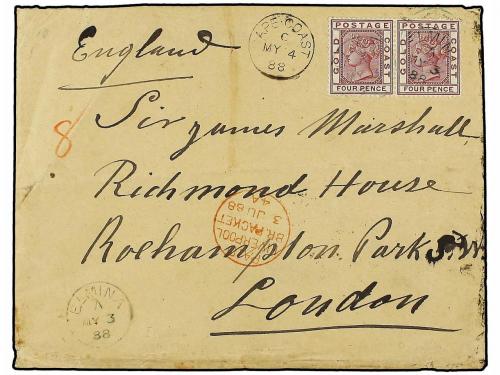 England
CAPE COAST
C
MY 4
88
POSTAGE
GOLD COAST
FOUR PENCE
POSTAGE
GOLD COAST
FOUR PENCE
8
Sir James Marshall
Richmond House
Roehampton Park S.W.
London
LIVERPOOL
BR. PACKET
3 JU 88
4A
ELMINA
A
MY 3
88